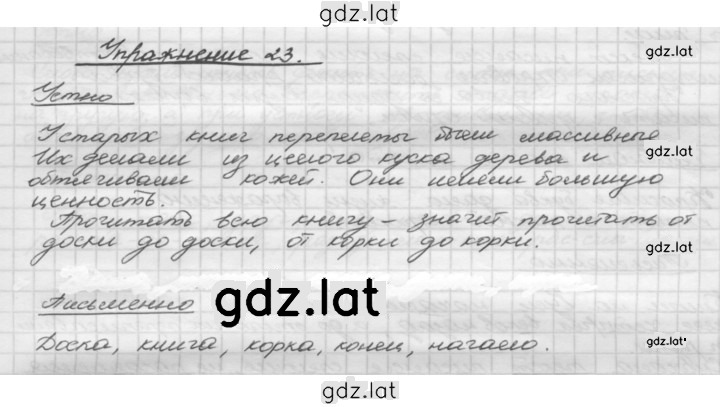 gdz.lat
Упражнение 23.
gdz.lat
Устно
У старых книг переплеты были массивные
Их делали из целого куска дерева и
gdz.lat
обтягивали кожей. Они имели большую
ценность.
Прочитать всю книгу – значит прочитать от
доски до доски, от корки до корки.
gdz.lat
Письменно
gdz.lat
Доска, книга, корка, конец, начало.
gdz.lat
gdz.lat